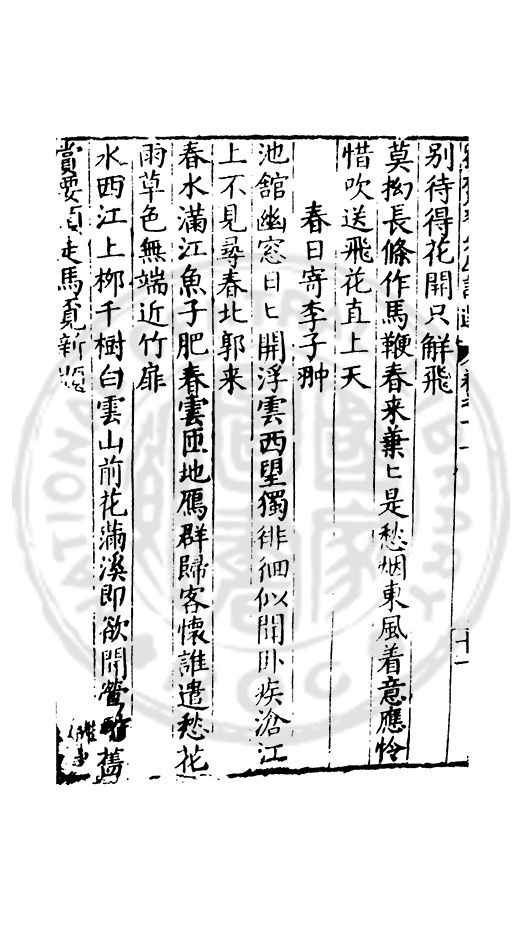 别待得花開只解飛
莫拗長條作馬鞭春来葉〻是愁烟東風着意應怜
惜吹送飛花直上天
春日寄李子翀
池舘幽窓日〻開浮雲西望獨徘徊似聞卧疾滄江
上不見尋春北郭来
春水滿江魚子肥春雲匝地鴈群歸客懷誰遣愁花
雨草色無端近竹扉
水西江上柳千樹白雲山前花滿溪即欲開舊
賞要須走馬覔新